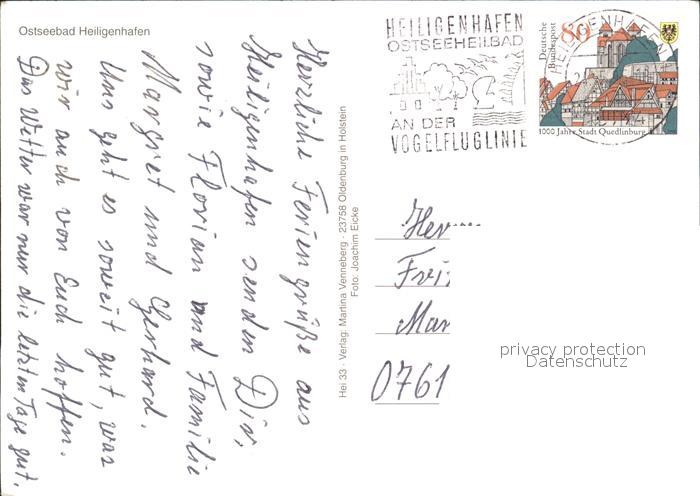 Ostseebad Heiligenhafen
Herzliche Feriengrüße aus
Heiligenhafen senden Dir,
sowie Florian und Familie
Margret und Gerhard.
Uns geht es soweit gut, was
wir auch von Euch hoffen.
Das Wetter war nur die letzten Tage gut.
Hei 33 - Verlag: Martina Venneberg - 23758 Oldenburg in Holstein
Foto: Joachim Eicke
HEILIGENHAFEN
OSTSEEHEILBAD
AN DER
VOGELFLUGLINIE
HEILIGENHAFEN
Deutsche
Bundespost
80
1000 Jahre Stadt Quedlinburg
Her
Frei
Mar
0761
privacy protection
Datenschutz